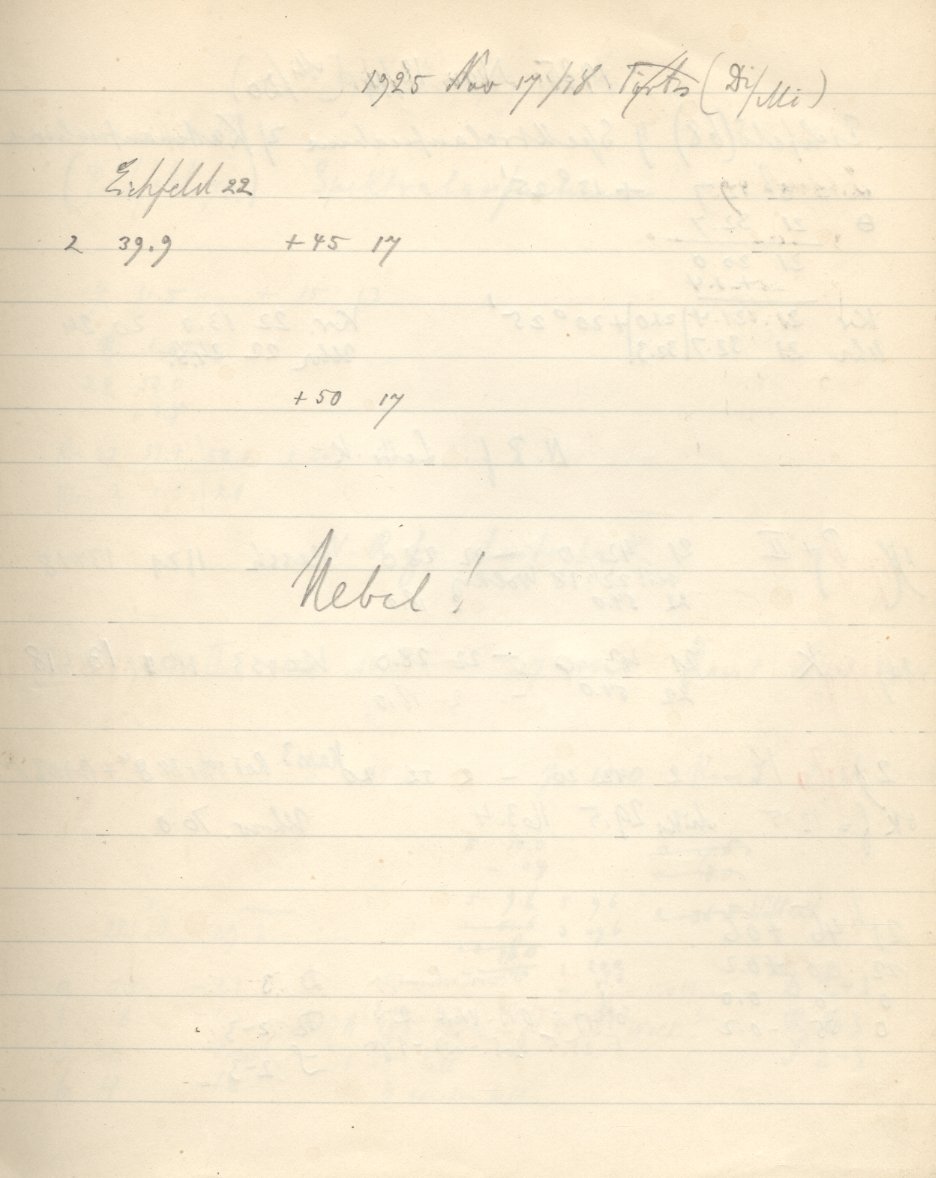 1925 Nov 17/18 (Di/Mi)
Eichfeld 22
2 39.9 +45 17
+50 17
Nebel!